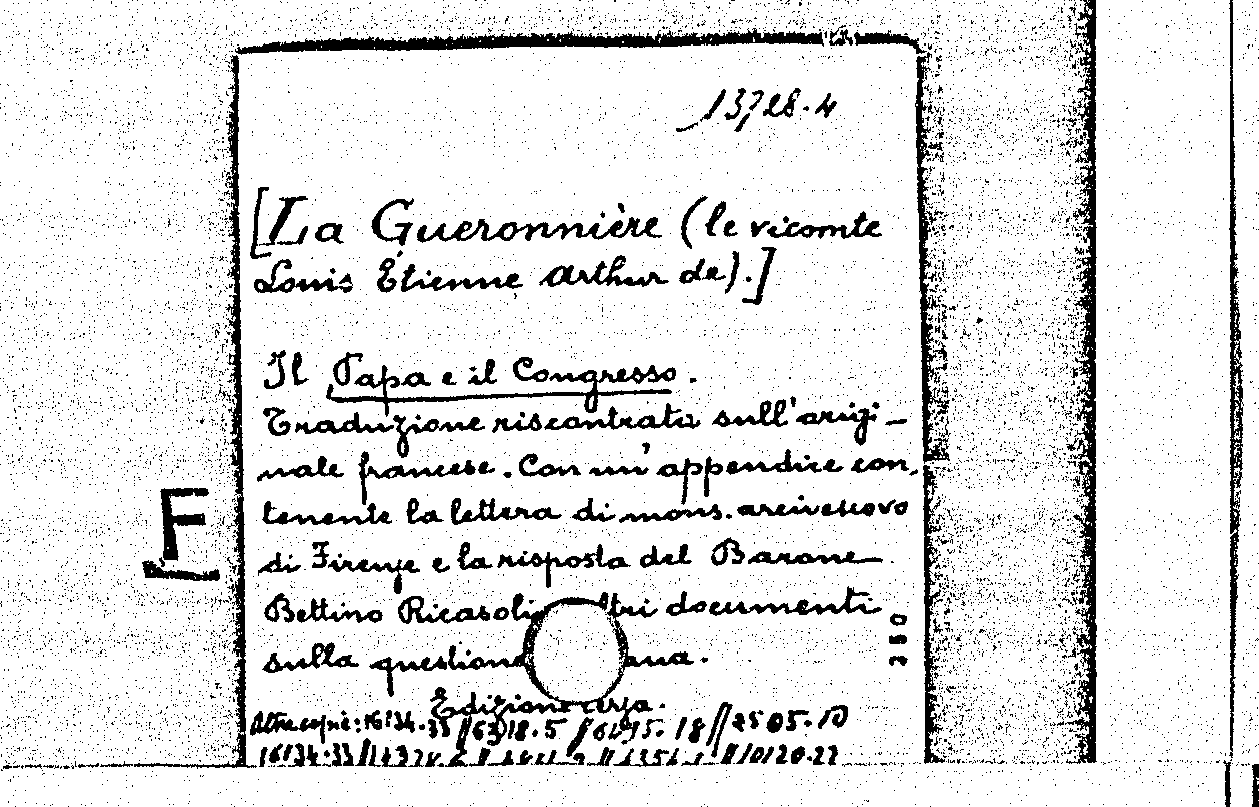 13728.4
[La Gueronnière (le vicomte
Louis Étienne Arthur de).]
Il Papa e il Congresso.
Traduzione riscontrata sull'origi-
nale francese. Con un'appendice con,
tenente la lettera di mons. arcivescovo
di Firenze e la risposta del Barone
F
Bettino Ricasoli ltri documenti
sulla question ana.
350
Edizione terza.
Altre copie: 16134.35 // 6318.5 // 6195.18 // 2505.10
16134.33 // // // // 10120.22